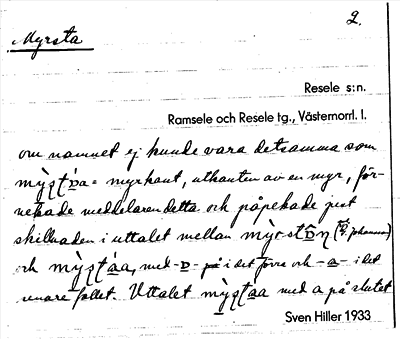 2.
Myrsta
Resele s:n.
Ramsele och Resele tg., Västernorrl. l.
om namnet ej kunde vara detsamma som
= myrkant, utkanten av en myr, för-
nekade meddelaren detta och påpekade just
skillnaden i uttalet mellan
och med i det förra och -a- i det
senare fallet. Uttalet med a på slutet
Sven Hiller 1933